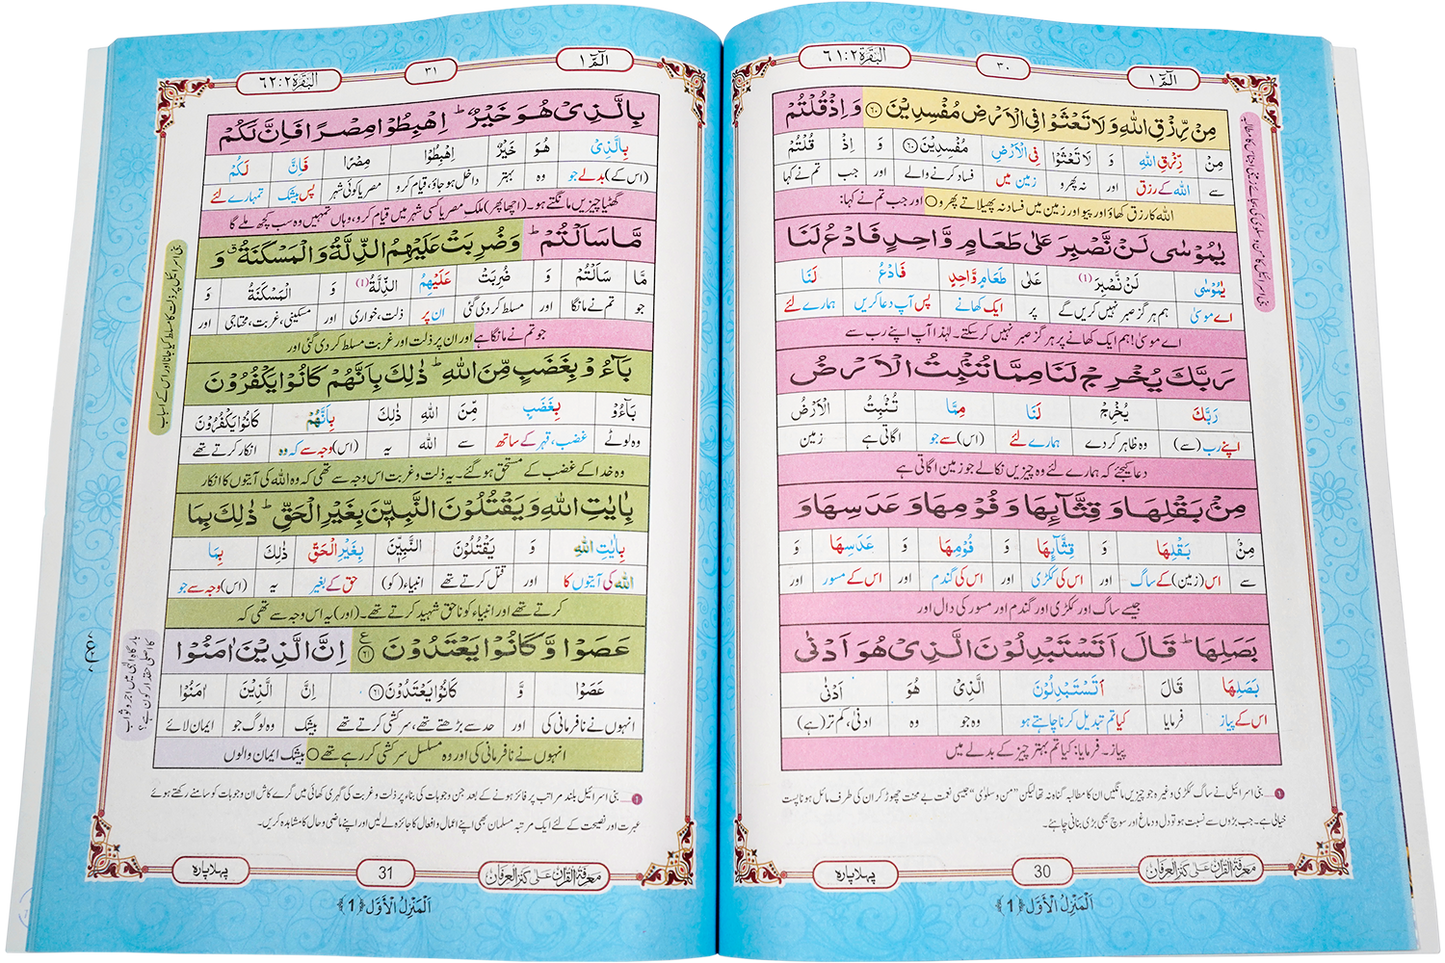 الٓمّٓ ١
٣٠
اَلْبَقَرَة ٢:٦١
مِنْ رِّزْقِ اللّٰهِ وَلَا تَعْثَوْا فِی الْاَرْضِ مُفْسِدِیْنَ ﴿٦٠﴾ وَاِذْ قُلْتُمْ
مِنْ رِّزْقِ اللّٰهِ وَ لَا تَعْثَوْا فِی الْاَرْضِ مُفْسِدِیْنَ ﴿٦٠﴾ وَ اِذْ قُلْتُمْ
سے اللہ کے رزق اور نہ پھرو زمین میں فساد کرنے والے اور جب تم نے کہا
اللہ کا رزق کھاؤ اور پیو اور زمین میں فساد نہ پھیلاتے پھرو ○ اور جب تم نے کہا:
یٰمُوْسٰی لَنْ نَّصْبِرَ عَلٰی طَعَامٍ وَّاحِدٍ فَادْعُ لَنَا
یٰمُوْسٰی لَنْ نَّصْبِرَ (١) عَلٰی طَعَامٍ وَّاحِدٍ فَادْعُ لَنَا
اے موسیٰ ہم ہرگز صبر نہیں کریں گے پر ایک کھانے پس آپ دعا کریں ہمارے لئے
اے موسیٰ! ہم ایک کھانے پر ہرگز صبر نہیں کرسکتے۔ لہٰذا آپ اپنے رب سے
رَبَّكَ یُخْرِجْ لَنَا مِمَّا تُنْۢبِتُ الْاَرْضُ
رَبَّكَ یُخْرِجْ لَنَا مِمَّا تُنْۢبِتُ الْاَرْضُ
اپنے رب (سے) وہ ظاہر کردے ہمارے لئے (اس) سے جو اگاتی ہے زمین
دعا کیجئے کہ ہمارے لئے وہ چیزیں نکالے جو زمین اگاتی ہے
مِنْۢ بَقْلِهَا وَ قِثَّآىٕهَا وَ فُوْمِهَا وَ عَدَسِهَا وَ
مِنْۢ بَقْلِهَا وَ قِثَّآىٕهَا وَ فُوْمِهَا وَ عَدَسِهَا وَ
سے اس (زمین) کے ساگ اور اس کی ککڑی اور اس کی گندم اور اس کے مسور اور
جیسے ساگ اور ککڑی اور گندم اور مسور کی دال اور
بَصَلِهَا ؕ قَالَ اَتَسْتَبْدِلُوْنَ الَّذِیْ هُوَ اَدْنٰی
بَصَلِهَا قَالَ اَتَسْتَبْدِلُوْنَ الَّذِیْ هُوَ اَدْنٰی
اس کے پیاز فرمایا کیا تم تبدیل کرنا چاہتے ہو وہ جو وہ ادنیٰ، کم تر (ہے)
پیاز۔ فرمایا: کیا تم بہتر چیز کے بدلے میں
١ بنی اسرائیل نے ساگ ککڑی وغیرہ جو چیزیں مانگیں ان کا مطالبہ گناہ نہ تھا لیکن "من و سلویٰ" جیسی نعت بے محنت چھوڑ کر ان کی طرف مائل ہونا پست
خیالی ہے۔ جب بڑوں سے نسبت ہو تو دل و دماغ اور سوچ بھی بڑی بنانی چاہئے۔
معرفۃ القرآن علیٰ کنز العرفان
30
پہلا پارہ
اَلْمَنْزِلُ الْاَوَّل ﴿1﴾
الٓمّٓ ١
٣١
اَلْبَقَرَة ٢:٦٢
بِالَّذِیْ هُوَ خَیْرٌ ؕ اِهْبِطُوْا مِصْرًا فَاِنَّ لَكُمْ
بِالَّذِیْ هُوَ خَیْرٌ اِهْبِطُوْا مِصْرًا فَاِنَّ لَكُمْ
(اس کے) بدلے جو وہ بہتر داخل ہوجاؤ، قیام کرو مصر یا کوئی شہر پس بیشک تمہارے لئے
گھٹیا چیزیں مانگتے ہو۔ (اچھا پھر) ملک مصر یا کسی شہر میں قیام کرو، وہاں تمہیں وہ سب کچھ ملے گا
مَّا سَاَلْتُمْ ؕ وَ ضُرِبَتْ عَلَیْهِمُ الذِّلَّةُ وَ الْمَسْكَنَةُ ۗ وَ
مَّا سَاَلْتُمْ وَ ضُرِبَتْ عَلَیْهِمُ الذِّلَّةُ (١) وَ الْمَسْكَنَةُ وَ
جو تم نے مانگا اور مسلط کردی گئی ان پر ذلت، خواری اور مسکینی، غربت، محتاجی اور
جو تم نے مانگا ہے اور ان پر ذلت اور غربت مسلط کردی گئی اور
بَآءُوْ بِغَضَبٍ مِّنَ اللّٰهِ ؕ ذٰلِكَ بِاَنَّهُمْ كَانُوْا یَكْفُرُوْنَ
بَآءُوْ بِغَضَبٍ مِّنَ اللّٰهِ ذٰلِكَ بِاَنَّهُمْ كَانُوْا یَكْفُرُوْنَ
وہ لوٹے غضب، قہر کے ساتھ سے اللہ یہ (اس) وجہ سے کہ وہ انکار کرتے تھے
وہ خدا کے غضب کے مستحق ہوگئے۔ یہ ذلت و غربت اس وجہ سے تھی کہ وہ اللہ کی آیتوں کا انکار
بِاٰیٰتِ اللّٰهِ وَ یَقْتُلُوْنَ النَّبِیّٖنَ بِغَیْرِ الْحَقِّ ؕ ذٰلِكَ بِمَا
بِاٰیٰتِ اللّٰهِ وَ یَقْتُلُوْنَ النَّبِیّٖنَ بِغَیْرِ الْحَقِّ ذٰلِكَ بِمَا
اللہ کی آیتوں کا اور قتل کرتے تھے انبیاء (کو) حق کے بغیر یہ (اس) وجہ سے جو
کرتے تھے اور انبیاء کو ناحق شہید کرتے تھے۔ (اور) یہ اس وجہ سے تھی کہ
عَصَوْا وَّ كَانُوْا یَعْتَدُوْنَ ﴿٦١﴾ ع اِنَّ الَّذِیْنَ اٰمَنُوْا
عَصَوْا وَّ كَانُوْا یَعْتَدُوْنَ ﴿٦١﴾ اِنَّ الَّذِیْنَ اٰمَنُوْا
انہوں نے نافرمانی کی اور حد سے بڑھتے تھے، سرکشی کرتے تھے بیشک وہ لوگ جو ایمان لائے
انہوں نے نافرمانی کی اور وہ مسلسل سرکشی کررہے تھے ○ بیشک ایمان والوں
بنی اسرائیل پر ذلت کا مسلط کیا جانا اور اس کے اسباب
بارگاہ الٰہی میں اجر و ثواب
کا اصلی حقدار کون ہے؟
١ بنی اسرائیل بلند مراتب پر فائز ہونے کے بعد جن وجوہات کی بنا پر ذلت و غربت کی گہری کھائی میں گرے کاش ان وجوہات کو سامنے رکھتے ہوئے
عبرت اور نصیحت کے لئے ایک مرتبہ مسلمان بھی اپنے اعمال و افعال کا جائزہ لے لیں اور اپنے ماضی و حال کا مشاہدہ کریں۔
معرفۃ القرآن علیٰ کنز العرفان
31
پہلا پارہ
اَلْمَنْزِلُ الْاَوَّل ﴿1﴾